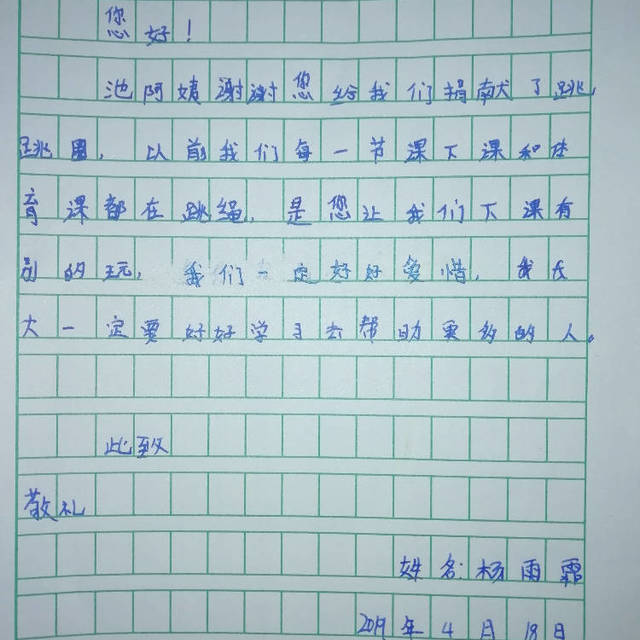 您好！
池阿姨谢谢您给我们捐献了跳，
跳圈，以前我们每一节课下课和体
育课都在跳绳，是您让我们下课有
别的玩，我们一定好好爱惜，我长
大一定要好好学习去帮助更多的人。
此致
敬礼
姓名：杨雨霜
2019年4月18日